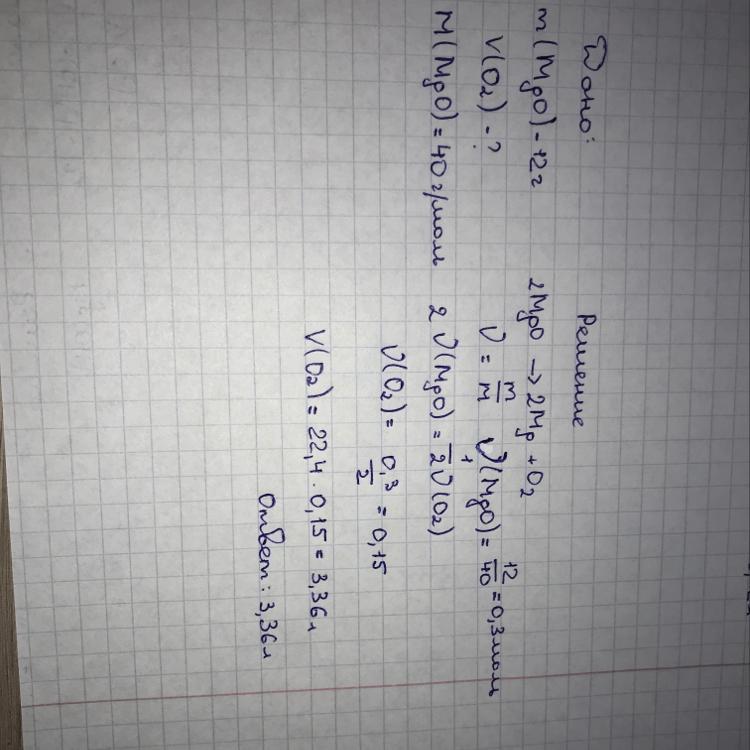 Дано:
m(MgO) - 12 г
V(O2) - ?
M(MgO) = 40 г/моль
Решение
2MgO → 2Mg + O2
ν = m/M ν(MgO) = 12/40 = 0,3 моль
2 ν(MgO) = 1/2 ν(O2)
ν(O2) = 0,3/2 = 0,15
V(O2) = 22,4 · 0,15 = 3,36 л
Ответ: 3,36 л